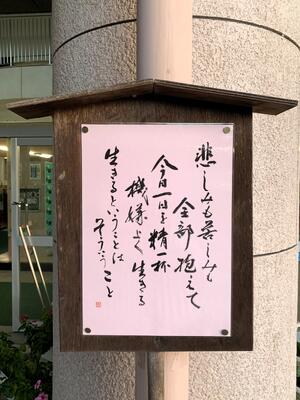 悲しみも苦しみも
全部抱えて
今日一日を精一杯
機嫌よく生きる
生きるということは
そういうこと